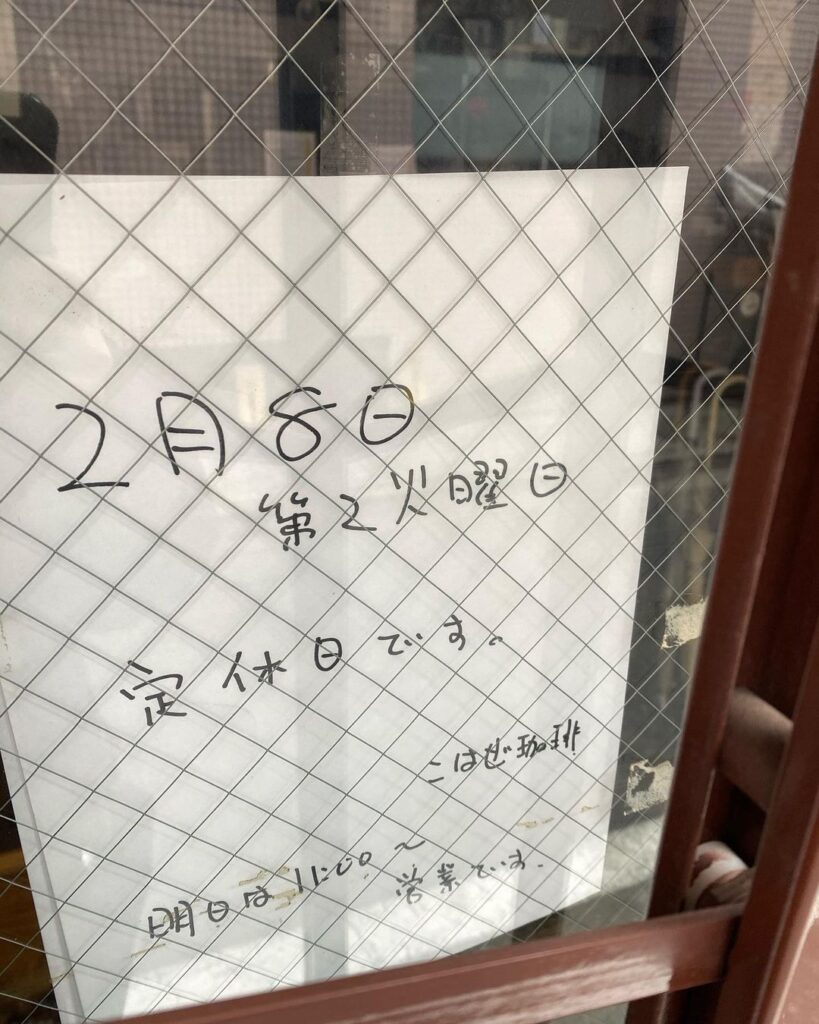 2月8日
第2火曜日
定休日です。
こはぜ珈琲
明日は11:00〜
営業です.